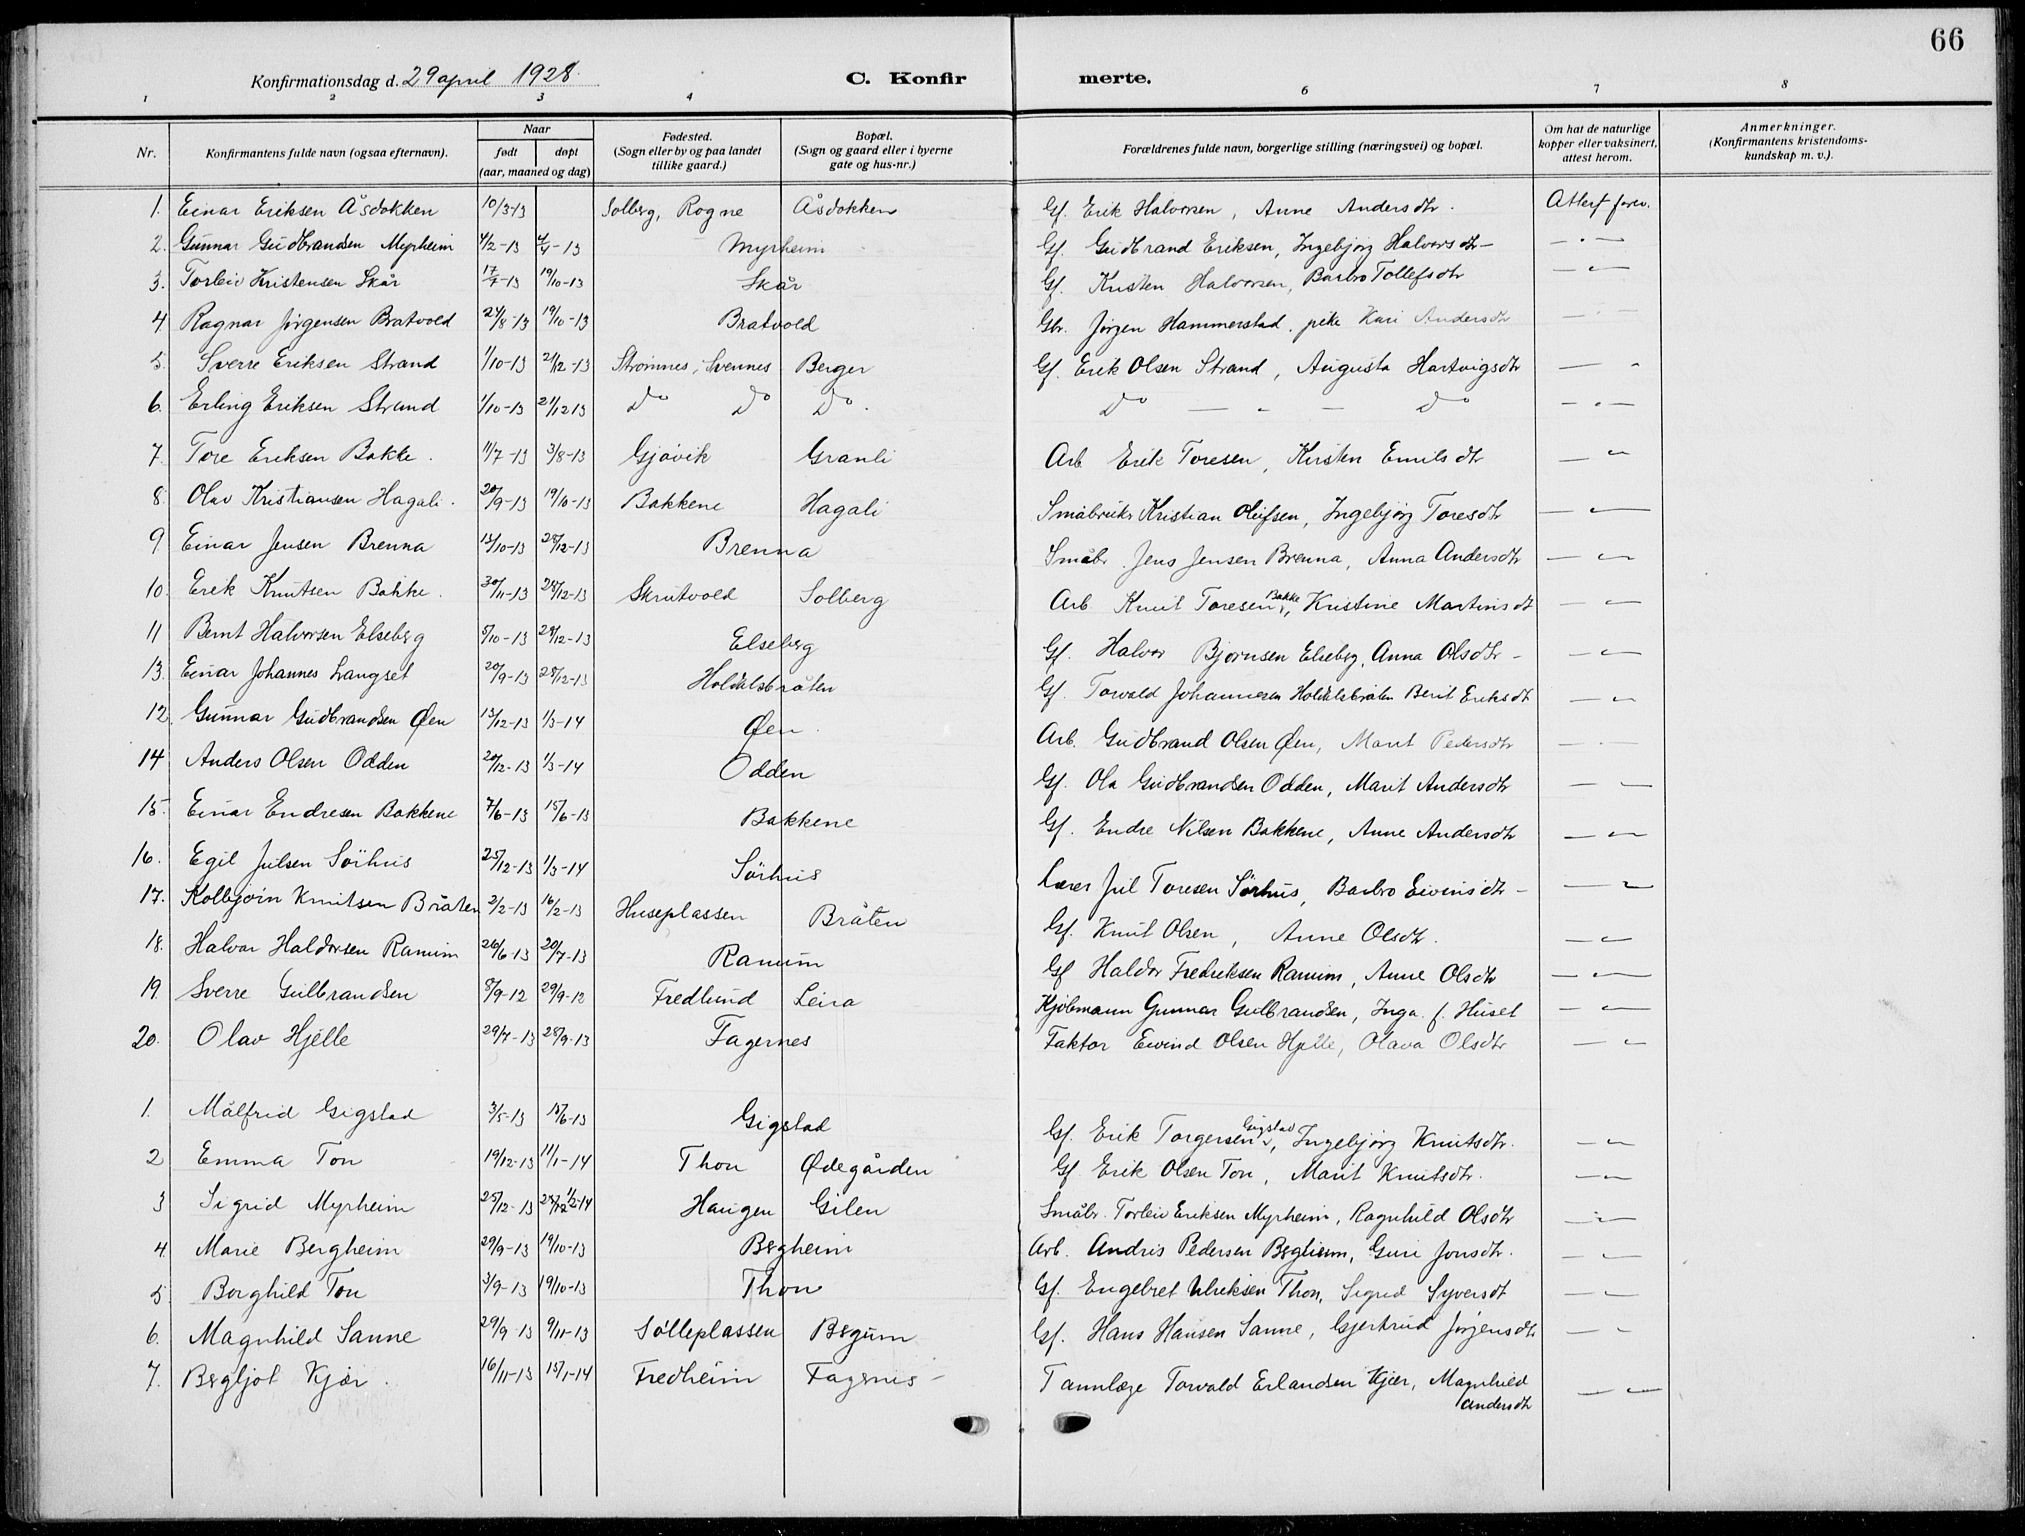 66
Konfirmationsdag d. 29 april 1928. C. Konfir merte.
1 2 3 4 6 7 8
Nr. Konfirmantens fulde navn (ogsaa efternavn). Naar født døpt (aar, maaned og dag) Fødested. (Sogn eller by og paa landet tillike gaard.) Bopæl. (Sogn og gaard eller i byerne gate og hus-nr.) Forældrenes fulde navn, borgerlige stilling (næringsvei) og bopæl. Om hat de naturlige kopper eller vaksinert, attest herom. Anmerkninger. (Konfirmantens kristendoms- kundskap m. v.).
1. Einar Eriksen Åsdokken 10/3-13 Solberg, Rogne Åsdokken Gf. Erik Halvorsen, Anne Andersdtr. Attest forev.
2. Gunnar Gudbrandsen Myrheim 4/2-13 4/4-13 Myrheim Gf. Gudbrand Eriksen, Ingebjörg Halvorsdtr - " -
3. Torleiv Kristensen Skår 17/7-13 19/10-13 Skår Gf. Kristen Halvorsen, Barbro Tollefsdtr - " -
4 Ragnar Jørgensen Bratvold 24/8-13 19/10-13 Bratvold Gbr. Jørgen Hammerstad. pike Kari Andersdtr - " -
5. Sverre Eriksen Strand 1/10-13 21/12-13 Strømnes, Svennes Berger Gf. Erik Olsen Strand, Augusta Hartvigsdtr - "
6. Erling Eriksen Strand 1/10-13 21/12 13 Do Do Do. Do - " - Do - " -
7. Tore Eriksen Bakke. 11/7-13 3/8-13 Gjøvik Granli Arb Erik Toresen, Kirsten Emilsdtr - "
8. Olav Kristiansen Hagali. 20/9-13 19/10-13 Bakkene Hagali Småbruk Kristian Olufsen, Ingebjörg Toresdtr - " -
9 Einar Jensen Brenna 13/10-13 28/12-13 Brenna Småbr. Jens Jensen Brenna, Anna Andersdtr - " -
10. Erik Knutsen Bakke. 30/11-13 28/12-13 Skrutvold Solberg Arb Knut Toresen Bakke, Kristine Martinsdt - " -
11 Bernt Halvorsen Elseberg 5/10-13 28/12-13 Elseberg Gf. Halvor Bjørnsen Elseberg, Anna Olsdtr - - " -
13. Einar Johannes Langset 20/9-13 28/12-13 Holdalsbråten Gf. Torvald Johannesen Holdalsbråten Berit Eriksdt - "
12. Gunnar Gudbrandsen Øen 13/12-13 1/3-14 Øen. Arb. Gudbrand Olsen Øen, Marit Pedersdtr - " -
14 Anders Olsen Odden 20/12-13 1/3-14 Odden Gf. Ola Gudbrandsen Odden, Marit Andersdtr - "
15. Einar Endresen Bakkene 7/6-13 15/6-13 Bakkene Gf. Endre Nilsen Bakkene, Anne Andersdtr - " -
16. Egil Julsen Sörhus 25/12-13 1/3-14 Sörhus Lærer Jul Toresen Sörhus, Barbro Eivinsdtr - - "
17. Kolbjörn Knutsen Bråten 2/2-13 16/2-13 Huseplassen Bråten Gf. Knut Olsen, Anne Olsdtr. - " -
18. Halvar Haldorsen Ranum 26/6-13 20/7-13 Ranum Gf Haldor Fredriksen Ranum, Anne Olsdtr - " -
19. Sverre Gulbrandsen 8/9-12 29/9-12 Fredlund Leira Kjøbmann Gunnar Gulbrandsen, Inga f. Huset - " -
20. Olav Hjelle 29/7-13 28/9-13 Fagernes Faktor Eivind Olsen Hjelle, Olava Olsdtr - "
1. Målfrid Gigstad 3/5-13 15/6-13 Gigstad Gf. Erik Torgersen Gigstad, Ingebjörg Knutsdtr. - "
2 Emma Ton 19/12-13 11/1-14 Thon Ødegården Gf. Erik Olsen Ton, Marit Knutsdtr. - " -
3 Sigrid Myrheim 25/12-13 1/2-14 Haugen Gilen Småbr. Torleiv Eriksen Myrheim, Ragnhild Olsdtr - " -
4. Marie Bergheim 29/9-13 19/10-13 Bergheim Arb. Andris Pedersen Bergheim, Guri Jonsdtr. - " -
5 Borghild Ton 3/9-13 19/10-13 Thon Gf. Engebret Ulriksen Thon, Sigrid Syversdt - " -
6. Magnhild Sanne 29/9-13 9/11-13 Sølleplassen Begum Gf. Hans Hansen Sanne, Gjertrud Jørgensdtr - "
7. Bergljot Kjær. 16/11-13 15/1-14 Fredheim Fagernes - Tannlæge Torvald Erlandsen Kjær, Magnhild Andersdtr - " -